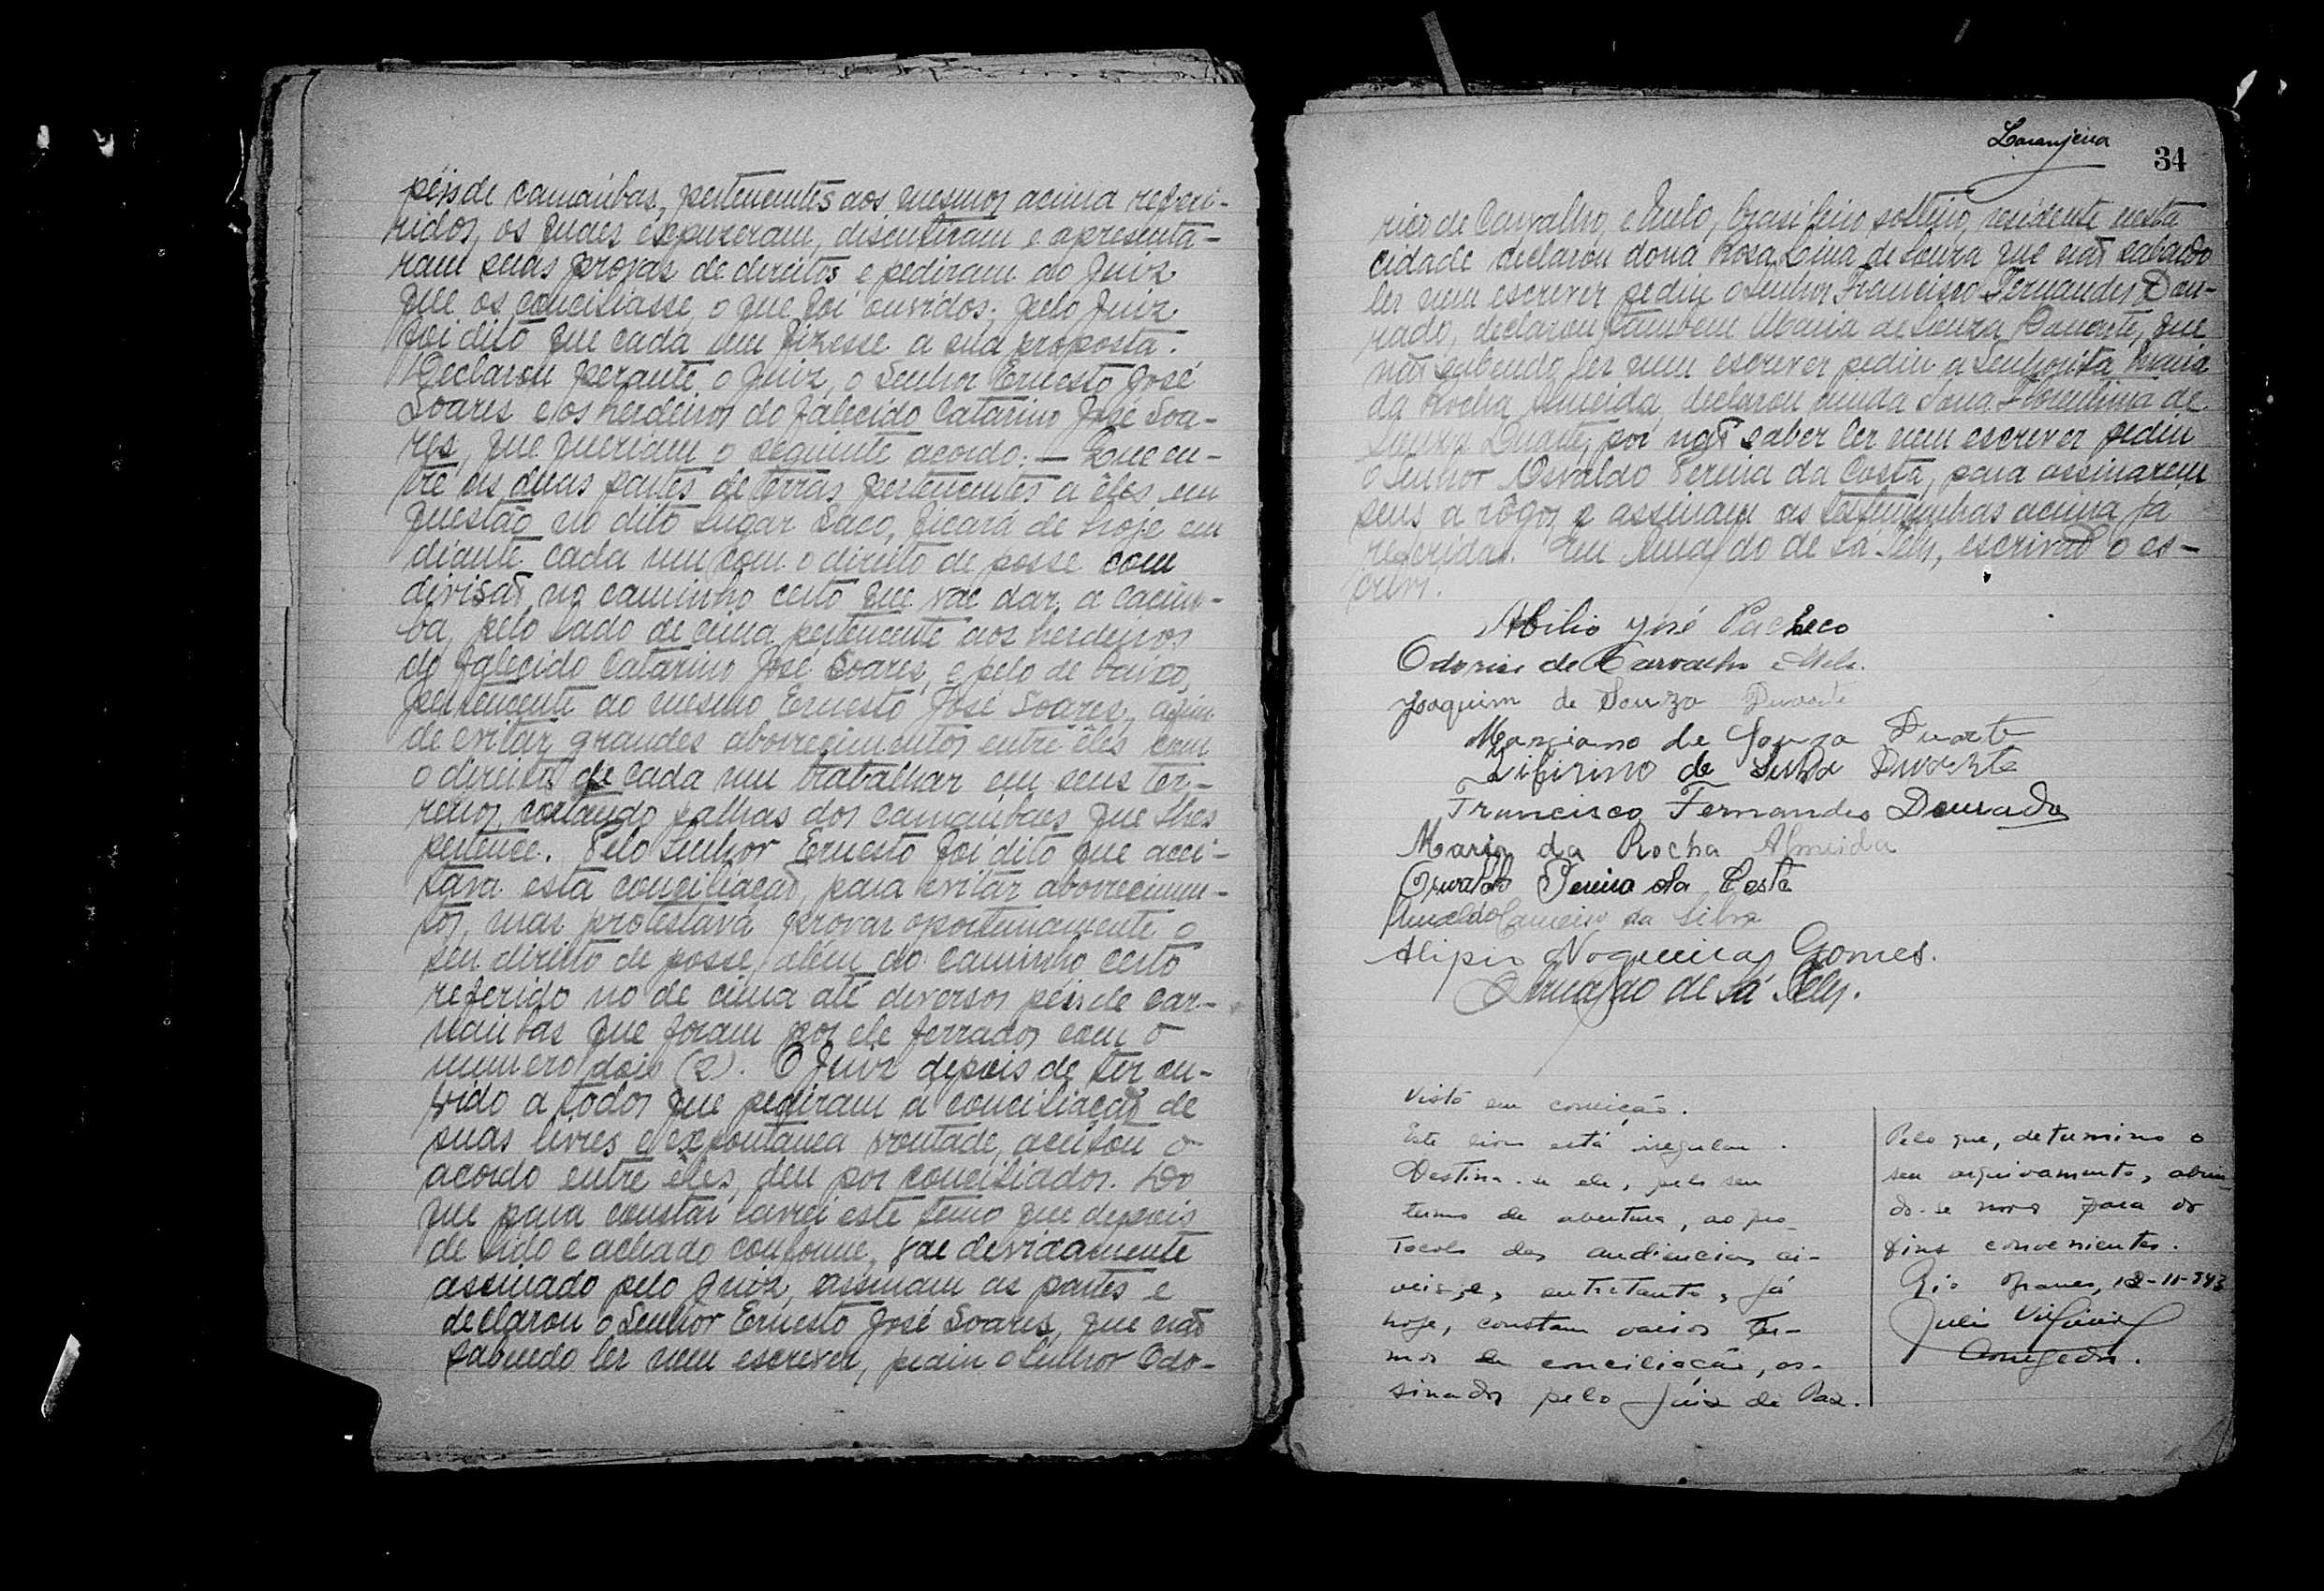 péis de carnaúbas, pertencentes aos mesmos acima referi-
ridos, os quaes expuzeram, discutiram e apresenta-
ram suas provas de direitos e pediram ao Juiz
que os conciliasse, o que foi ouvidos; pelo Juiz
foi dito que cada um fizesse a sua proposta.
Declarou perante o Juiz, o Senhor Ernesto José
Soares e os herdeiros do falecido Catarino José Soa-
res, que queriam o seguinte acordo: — Que en-
tre as duas partes de terras pertencentes a êles em
questão no dito lugar Saco, ficará de hoje em
diante cada um com o direito de posse com
divisão no caminho certo que vae dar a cacim-
ba, pelo lado de cima pertencente aos herdeiros
do falecido Catarino José Soares, e pelo de baixo,
pertencente ao mesmo Ernesto José Soares, afim
de evitar grandes aborrecimentos entre êles com
o direito de cada um trabalhar em seus ter-
renos, cortando palhas dos carnaúbaes que lhes
pertence. Pelo Senhor Ernesto foi dito que acei-
tava esta conciliação, para evitar aborrecimen-
tos, mas protestava provar oportunamente o
seu direito de posse, além do caminho certo
referido no de cima até diversos péis de car-
naúbas que foram por ele ferrados com o
numero dois (2). O Juiz depois de ter ou-
vido a todos que pediram a conciliação de
suas livres e expontanea vontade, aceitou o
acordo entre êles, deu por conciliados. Do
que para constar lavrei este termo que depois
de lido e achado conforme, vae devidamente
assinado pelo Juiz, assinam as partes e
declarou o Senhor Ernesto José Soares, que não
sabendo ler nem escrever, pediu o Senhor Odo-
Laranjeira
34
rico de Carvalho e Mélo, brasileiro solteiro, residente nesta
cidade declarou dona Rosa Lina de Souza que não sabendo
ler nem escrever pediu o Senhor Francisco Fernandes Dou-
rado, declarou tambem Maria de Souza Duarte, que
não sabendo ler nem escrever pediu a Senhorita Maria
da Rocha Almeida, declarou ainda dona Florentina de
Souza Duarte, por não saber ler nem escrever pediu
o Senhor Osvaldo Pereira da Costa, para assinarem
seus a rôgos, e assinam as testemunhas acima já
referidas. Eu Arnaldo de Sá Teles, escrivão o es-
crevi.
Abilio José Pacheco
Odorico de Carvalho e Melo.
Joaquim de Souza Duarte
Marciano de Souza Duarte
Liberino de Souza Duarte
Francisco Fernandes Dourado
Maria da Rocha Almeida
Osvaldo Pereira da Costa
Arnaldo Carneiro da Silva
Alipio Nogueira Gomes.
Arnaldo de Sá Teles.
Visto em correição.
Este livro está irregular.
Destina-se ele, pelo seu
termo de abertura, ao pro-
tocolo das audiencias ci-
veis, e, entretanto, já
hoje, constam varios ter-
mos de conciliação, as-
sinados pelo Juiz de Paz.
Pelo que, determino o
seu arquivamento, abrin-
do-se novo para os
fins convenientes.
12-11-943
Corregedor.